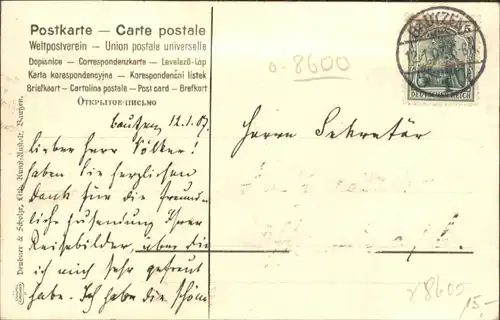 Postkarte — Carte postale
Weltpostverein – Union postale universelle
Dopisnice – Correspondenzkarte – Levelező-Lap
Karta korespondencyjna – Korespondenční lístek
Briefkaart – Cartolina postale – Post card – Brefkort
Открытое-письмо
BAUTZEN
DEUTSCHES REICH
o-8600
Bautzen 12.1.07.
lieber Herr Völker!
haben Sie herzlichen
Dank für die freund-
liche Zusendung Ihrer
Reisebilder, über die
ich mich sehr gefreut
habe. Ich habe die schöne
Herrn Sekretär
8600
15,-
Lith. Kunst-Anstalt, Bautzen.